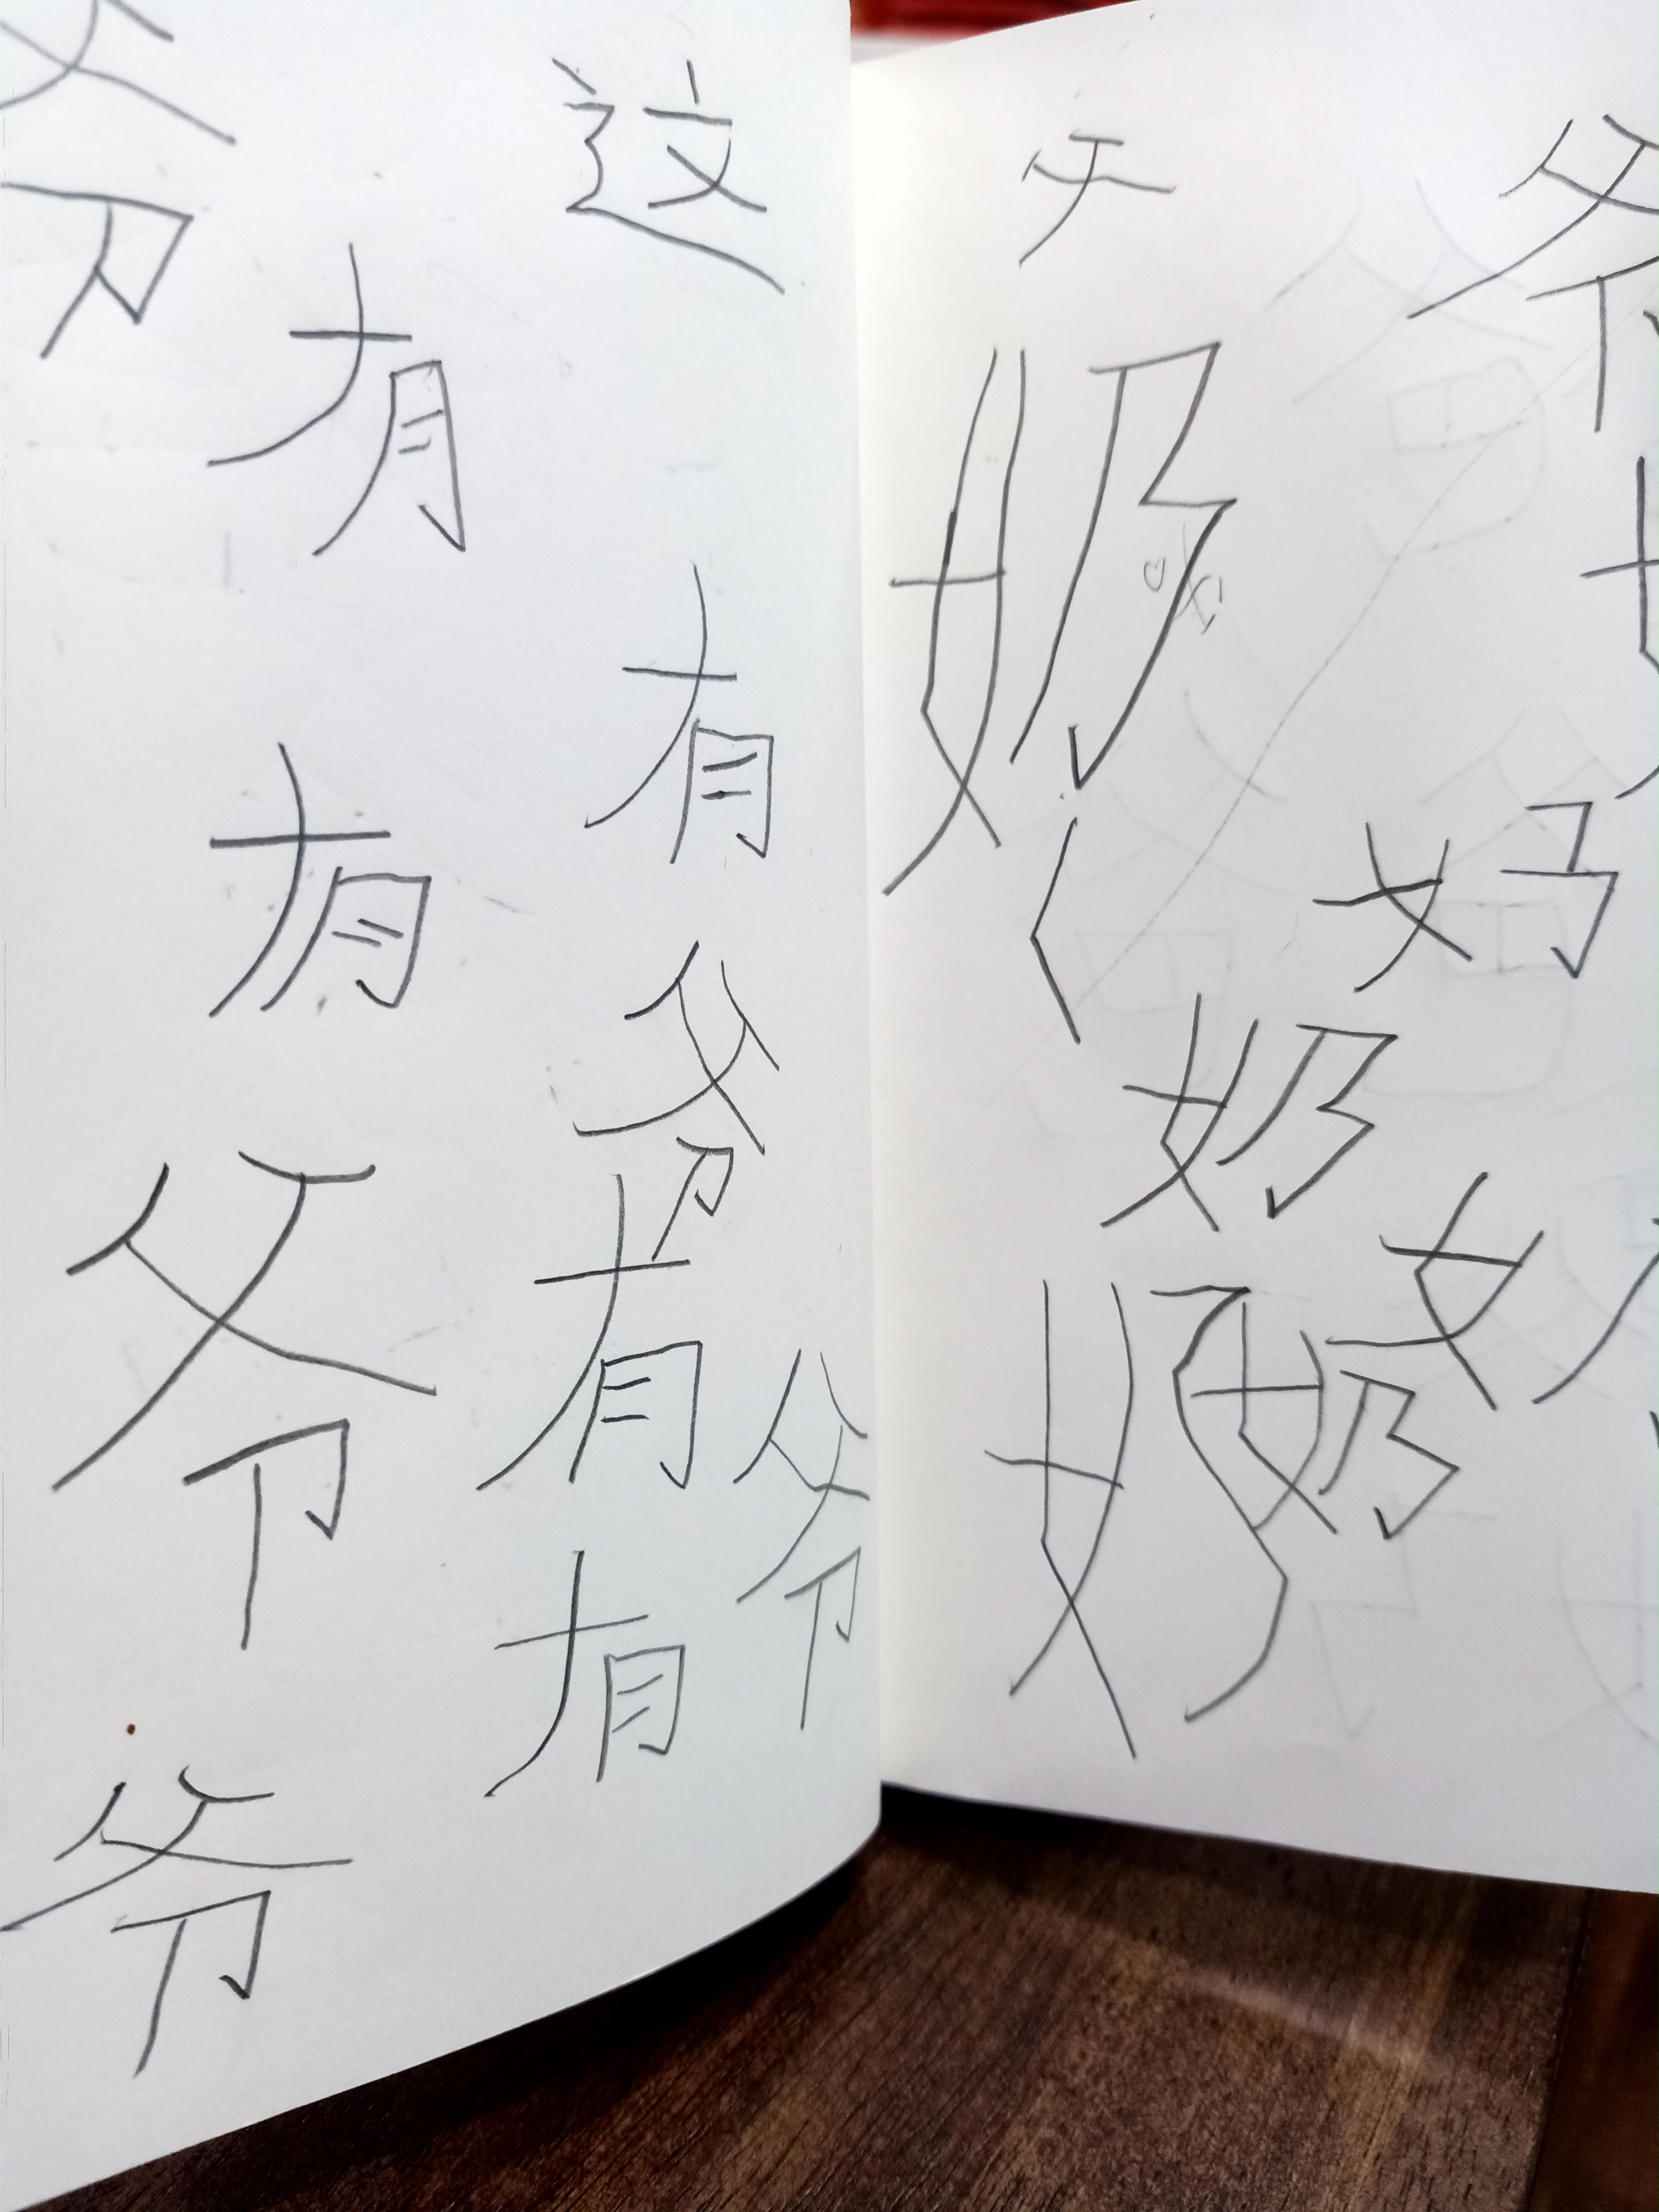 这
爷
有
有
有
爷
爷
有
爷
有
爷
爷
奶
奶
奶
奶
奶